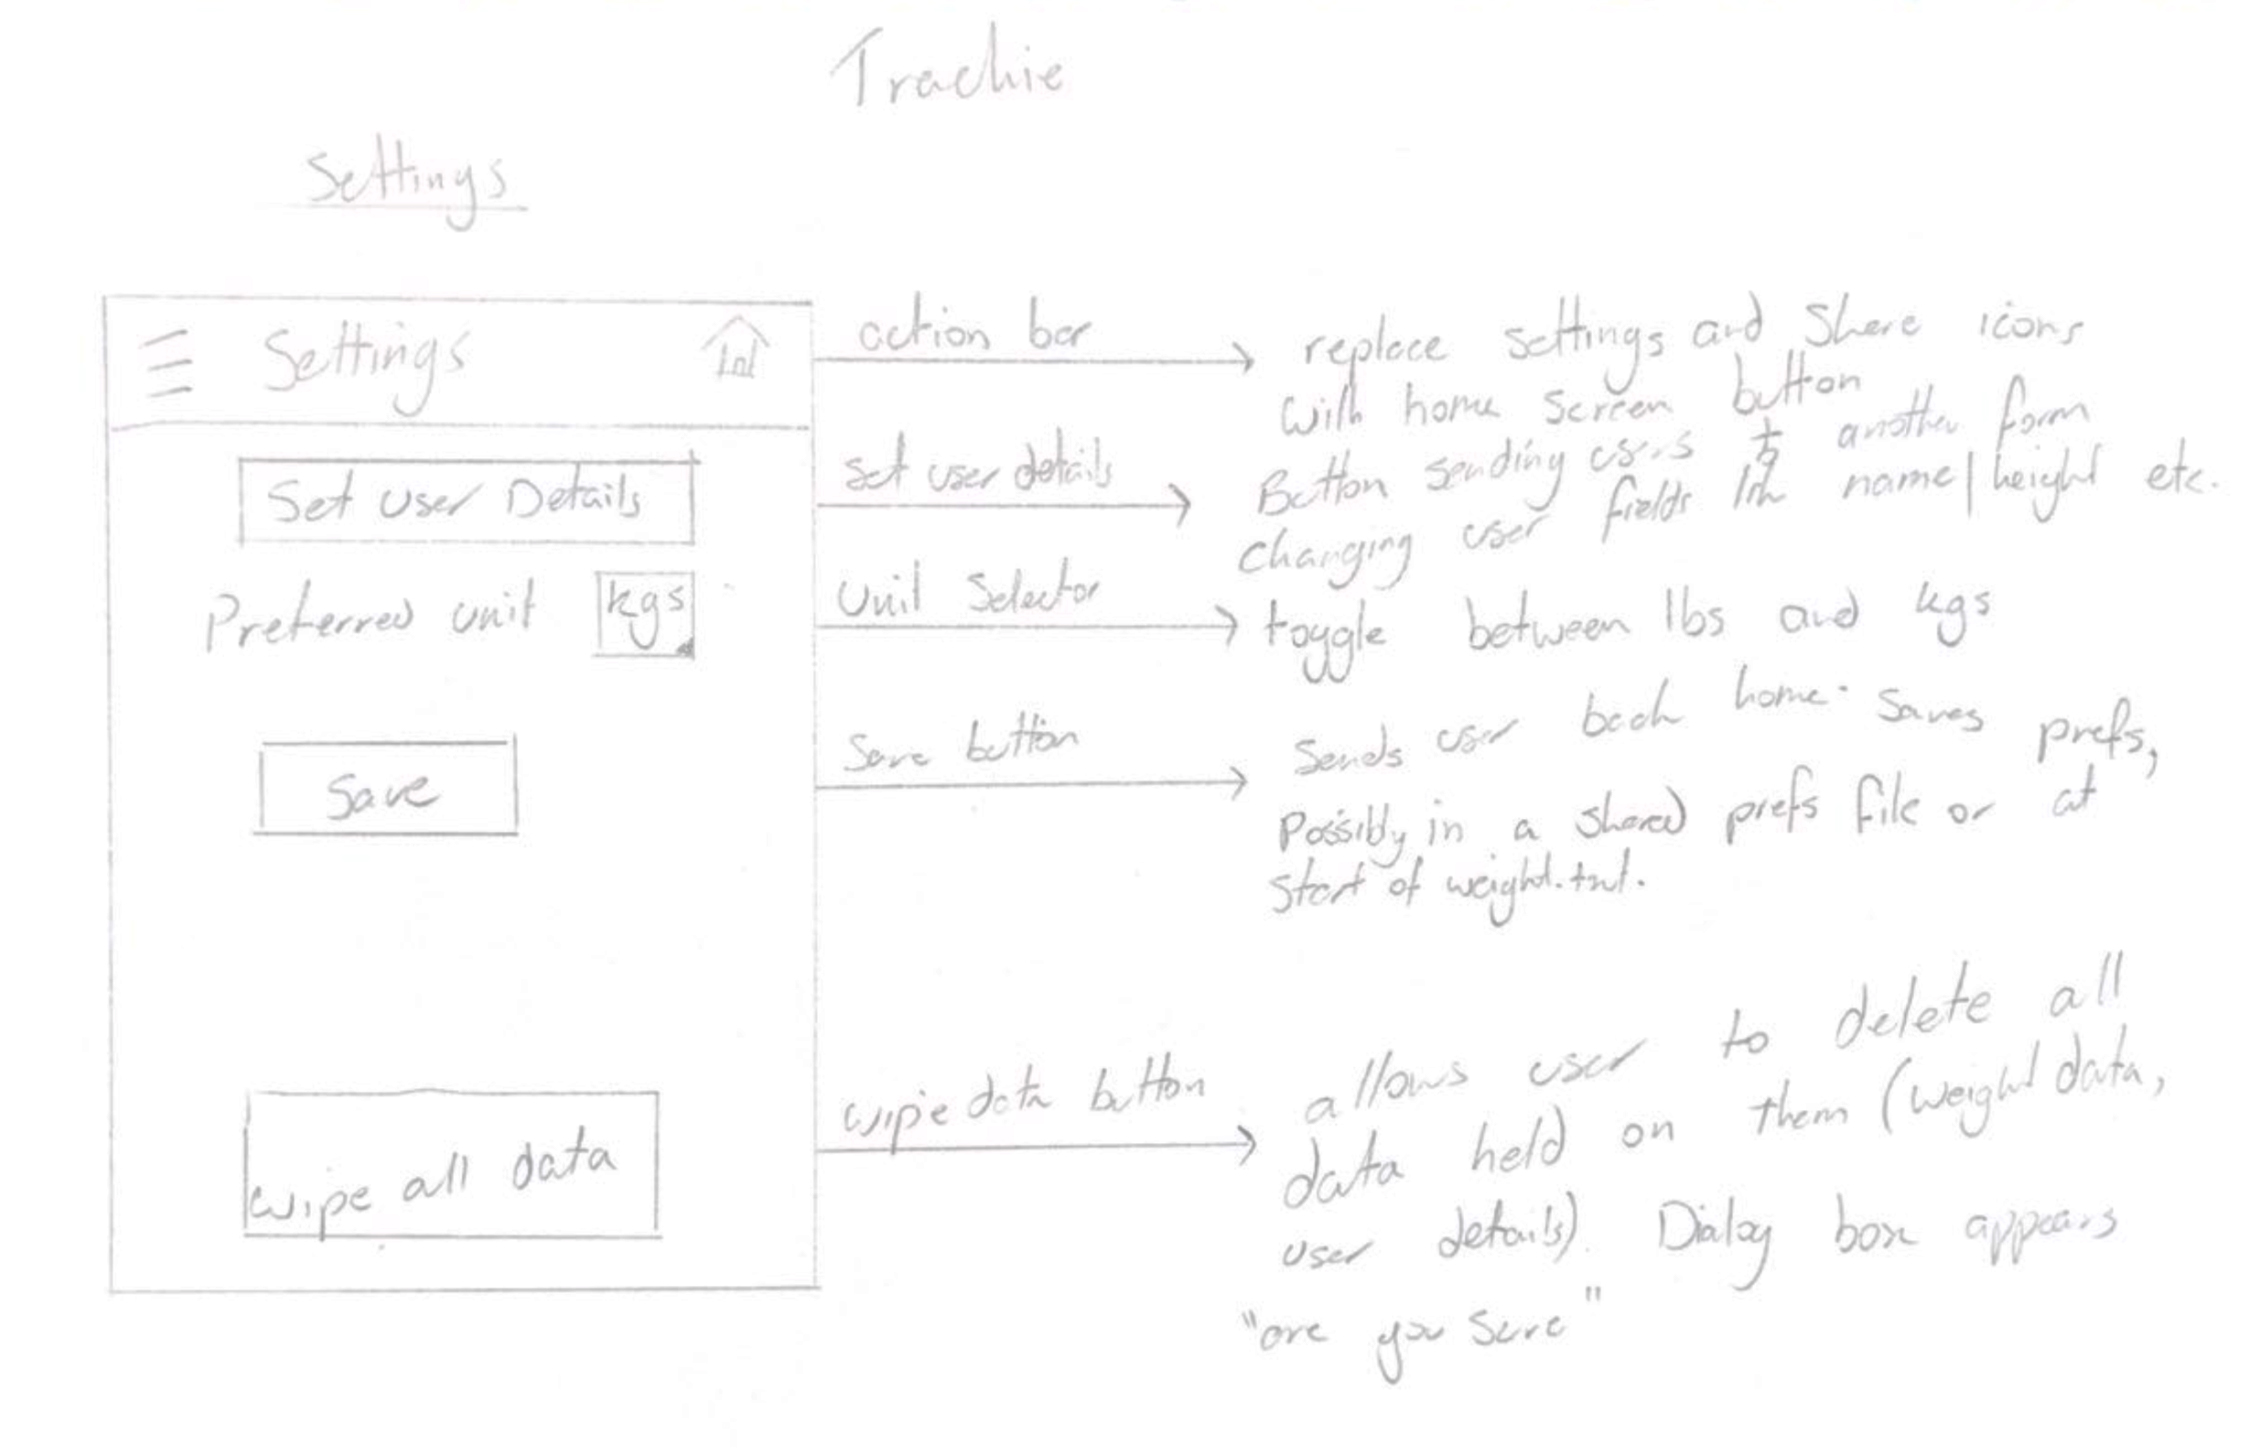 Trackie
Settings
Settings
Set User Details
Preferred unit kgs
Save
wipe all data
action bar
replace settings and share icons
with home screen button
set user details
Button sending users to another form
changing user fields like name/height etc.
Unit Selector
toggle between lbs and kgs
Save button
Sends user back home. Saves prefs,
Possibly in a shared prefs file or at
start of weight.txt.
wipe data button
allows user to delete all
data held on them (weight data,
user details). Dialog box appears
"are you sure"